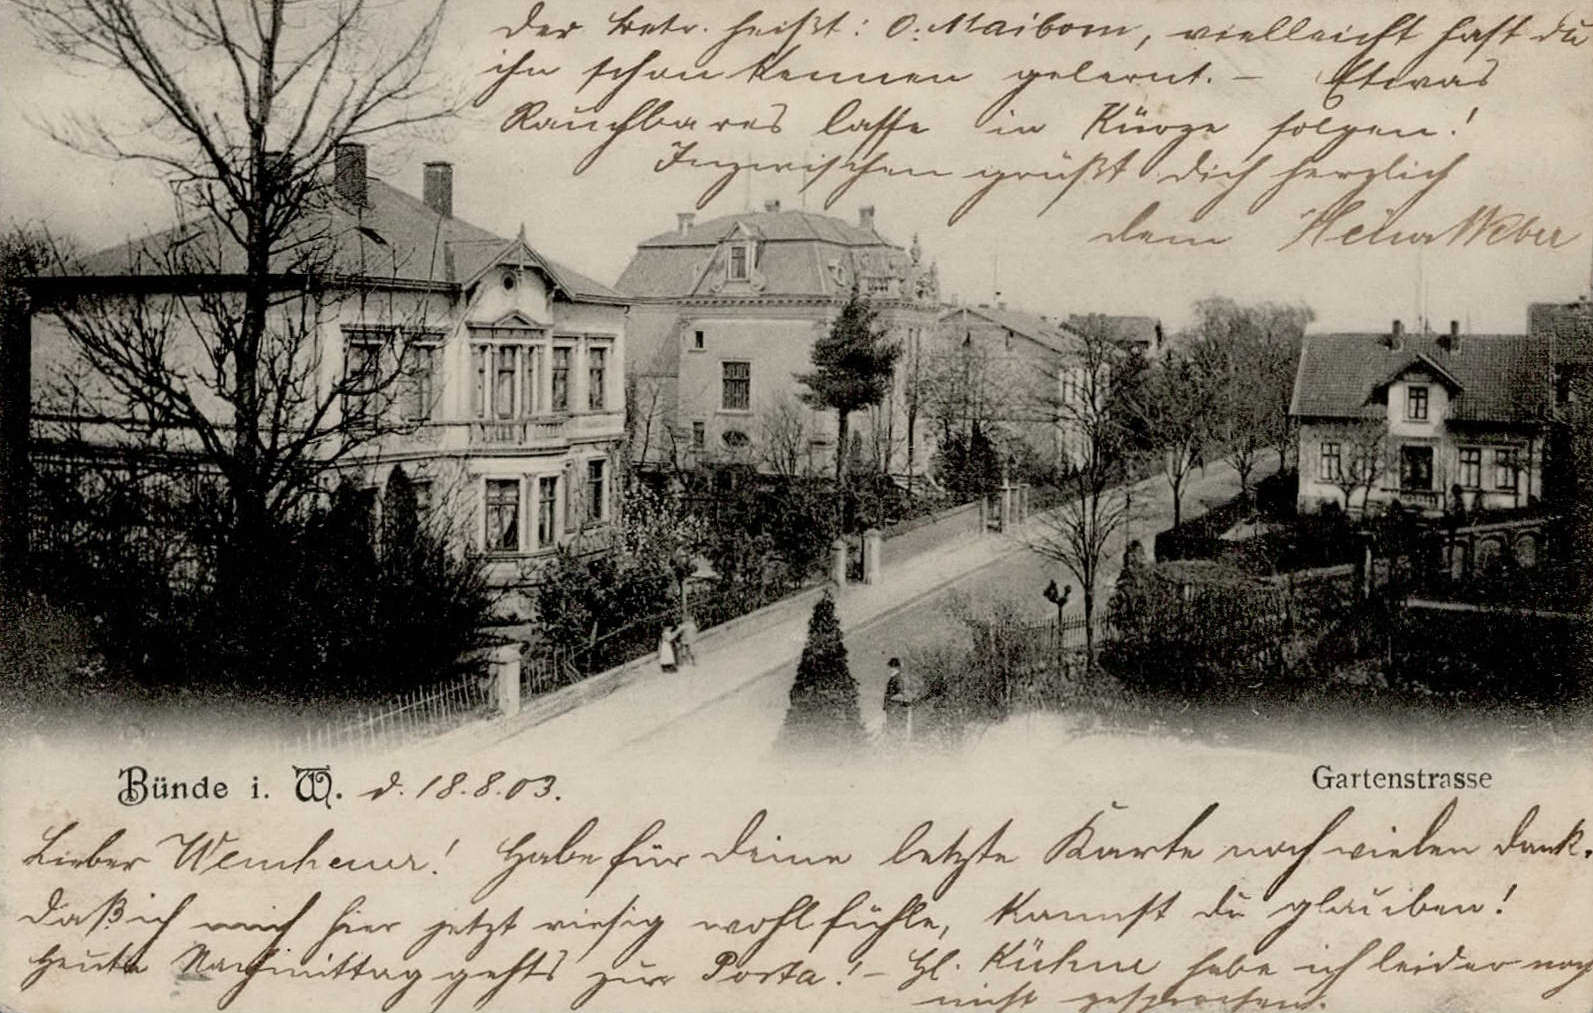 Der Betr. heißt: O. Maibom, vielleicht hast du
ihn schon kennen gelernt. – Etwas
Rauchbares lasse in Kürze folgen!
Inzwischen grüßt dich herzlich
dein Weber
Bünde i. W. d. 18.8.03.
Gartenstrasse
Lieber ! Habe für deine letzte Karte noch vielen Dank.
Daß ich mich hier jetzt riesig wohl fühle, kannst du glauben!
Heute Nachmittag gehts zur Porta! – Hl. Kühne habe ich leider noch
nicht gesprochen.